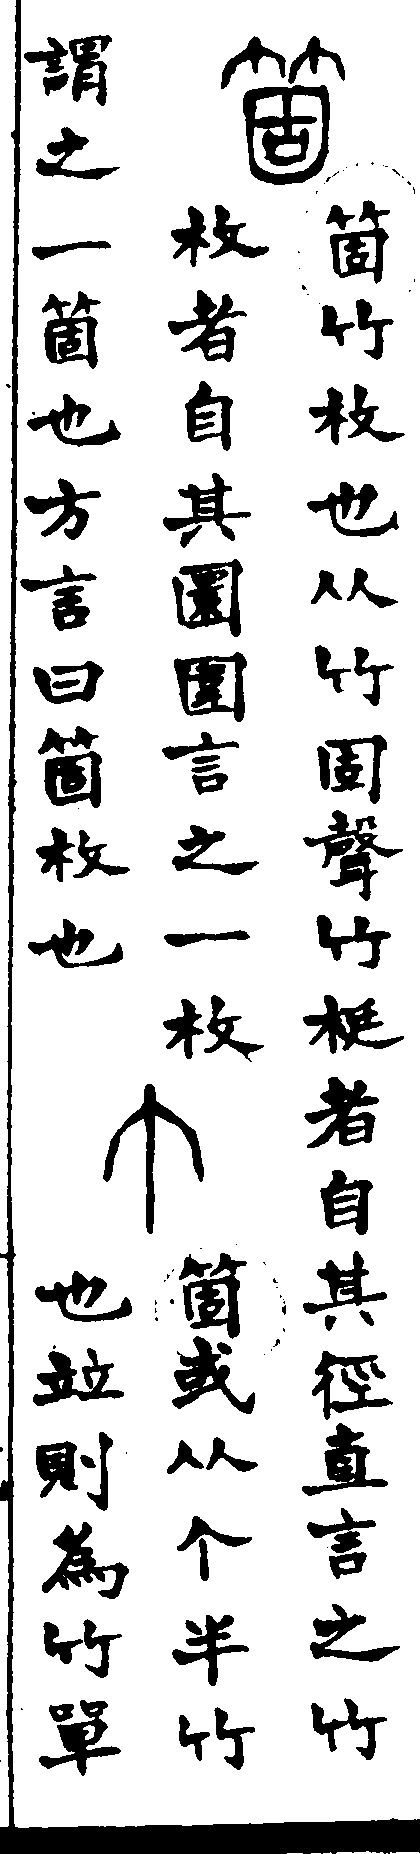 箇
箇竹枚也从竹固聲竹梃者自其徑直言之竹
枚者自其圜圍言之一枚
謂之一箇也方言曰箇枚也
个
箇或从个半竹
也竝則為竹單